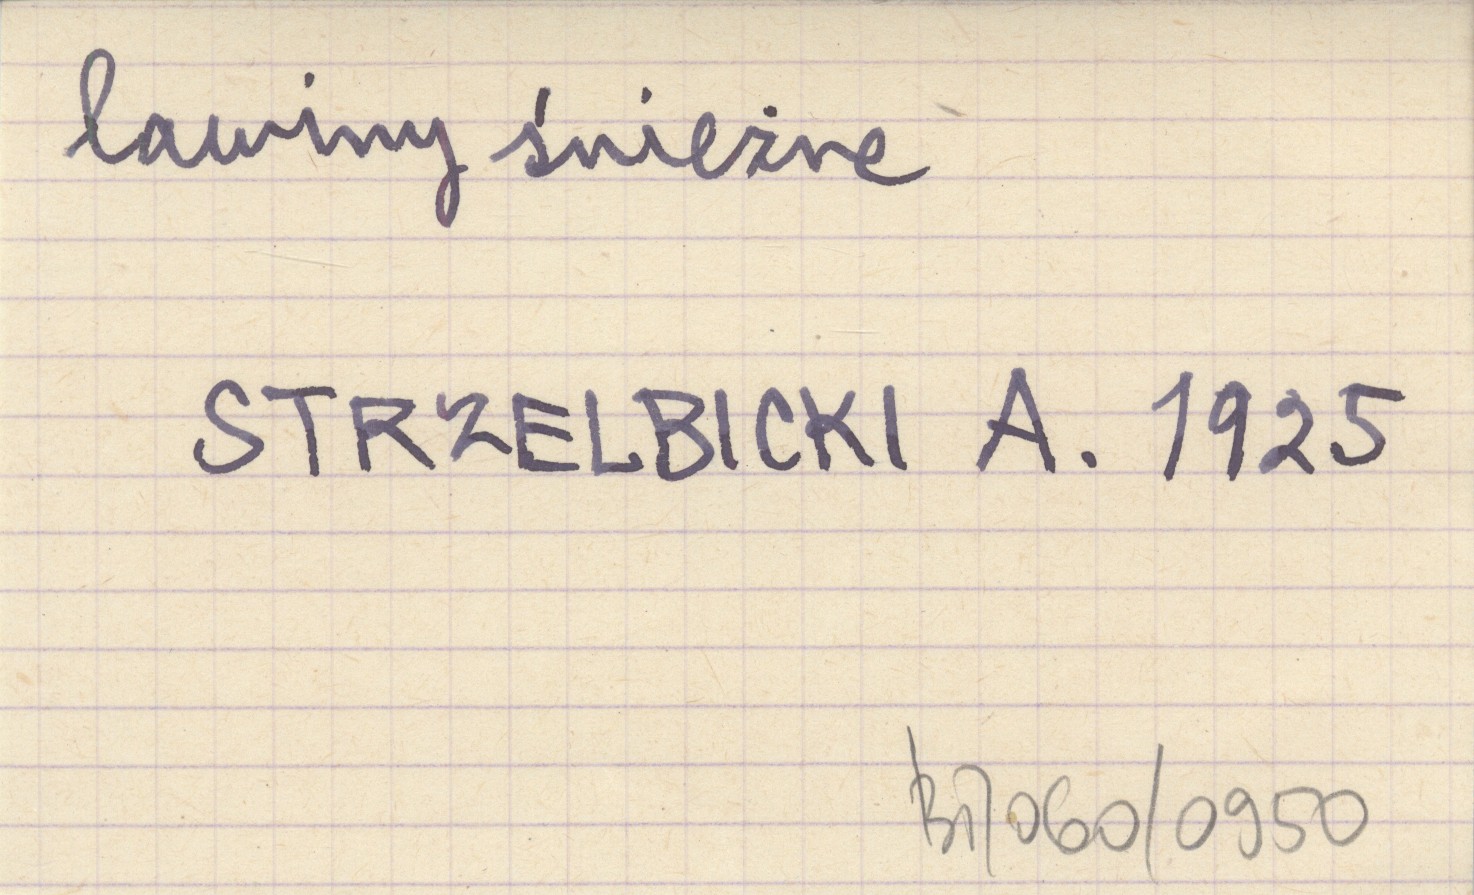 lawiny śnieżne
STRZELBICKI A. 1925
Bi7060/0950